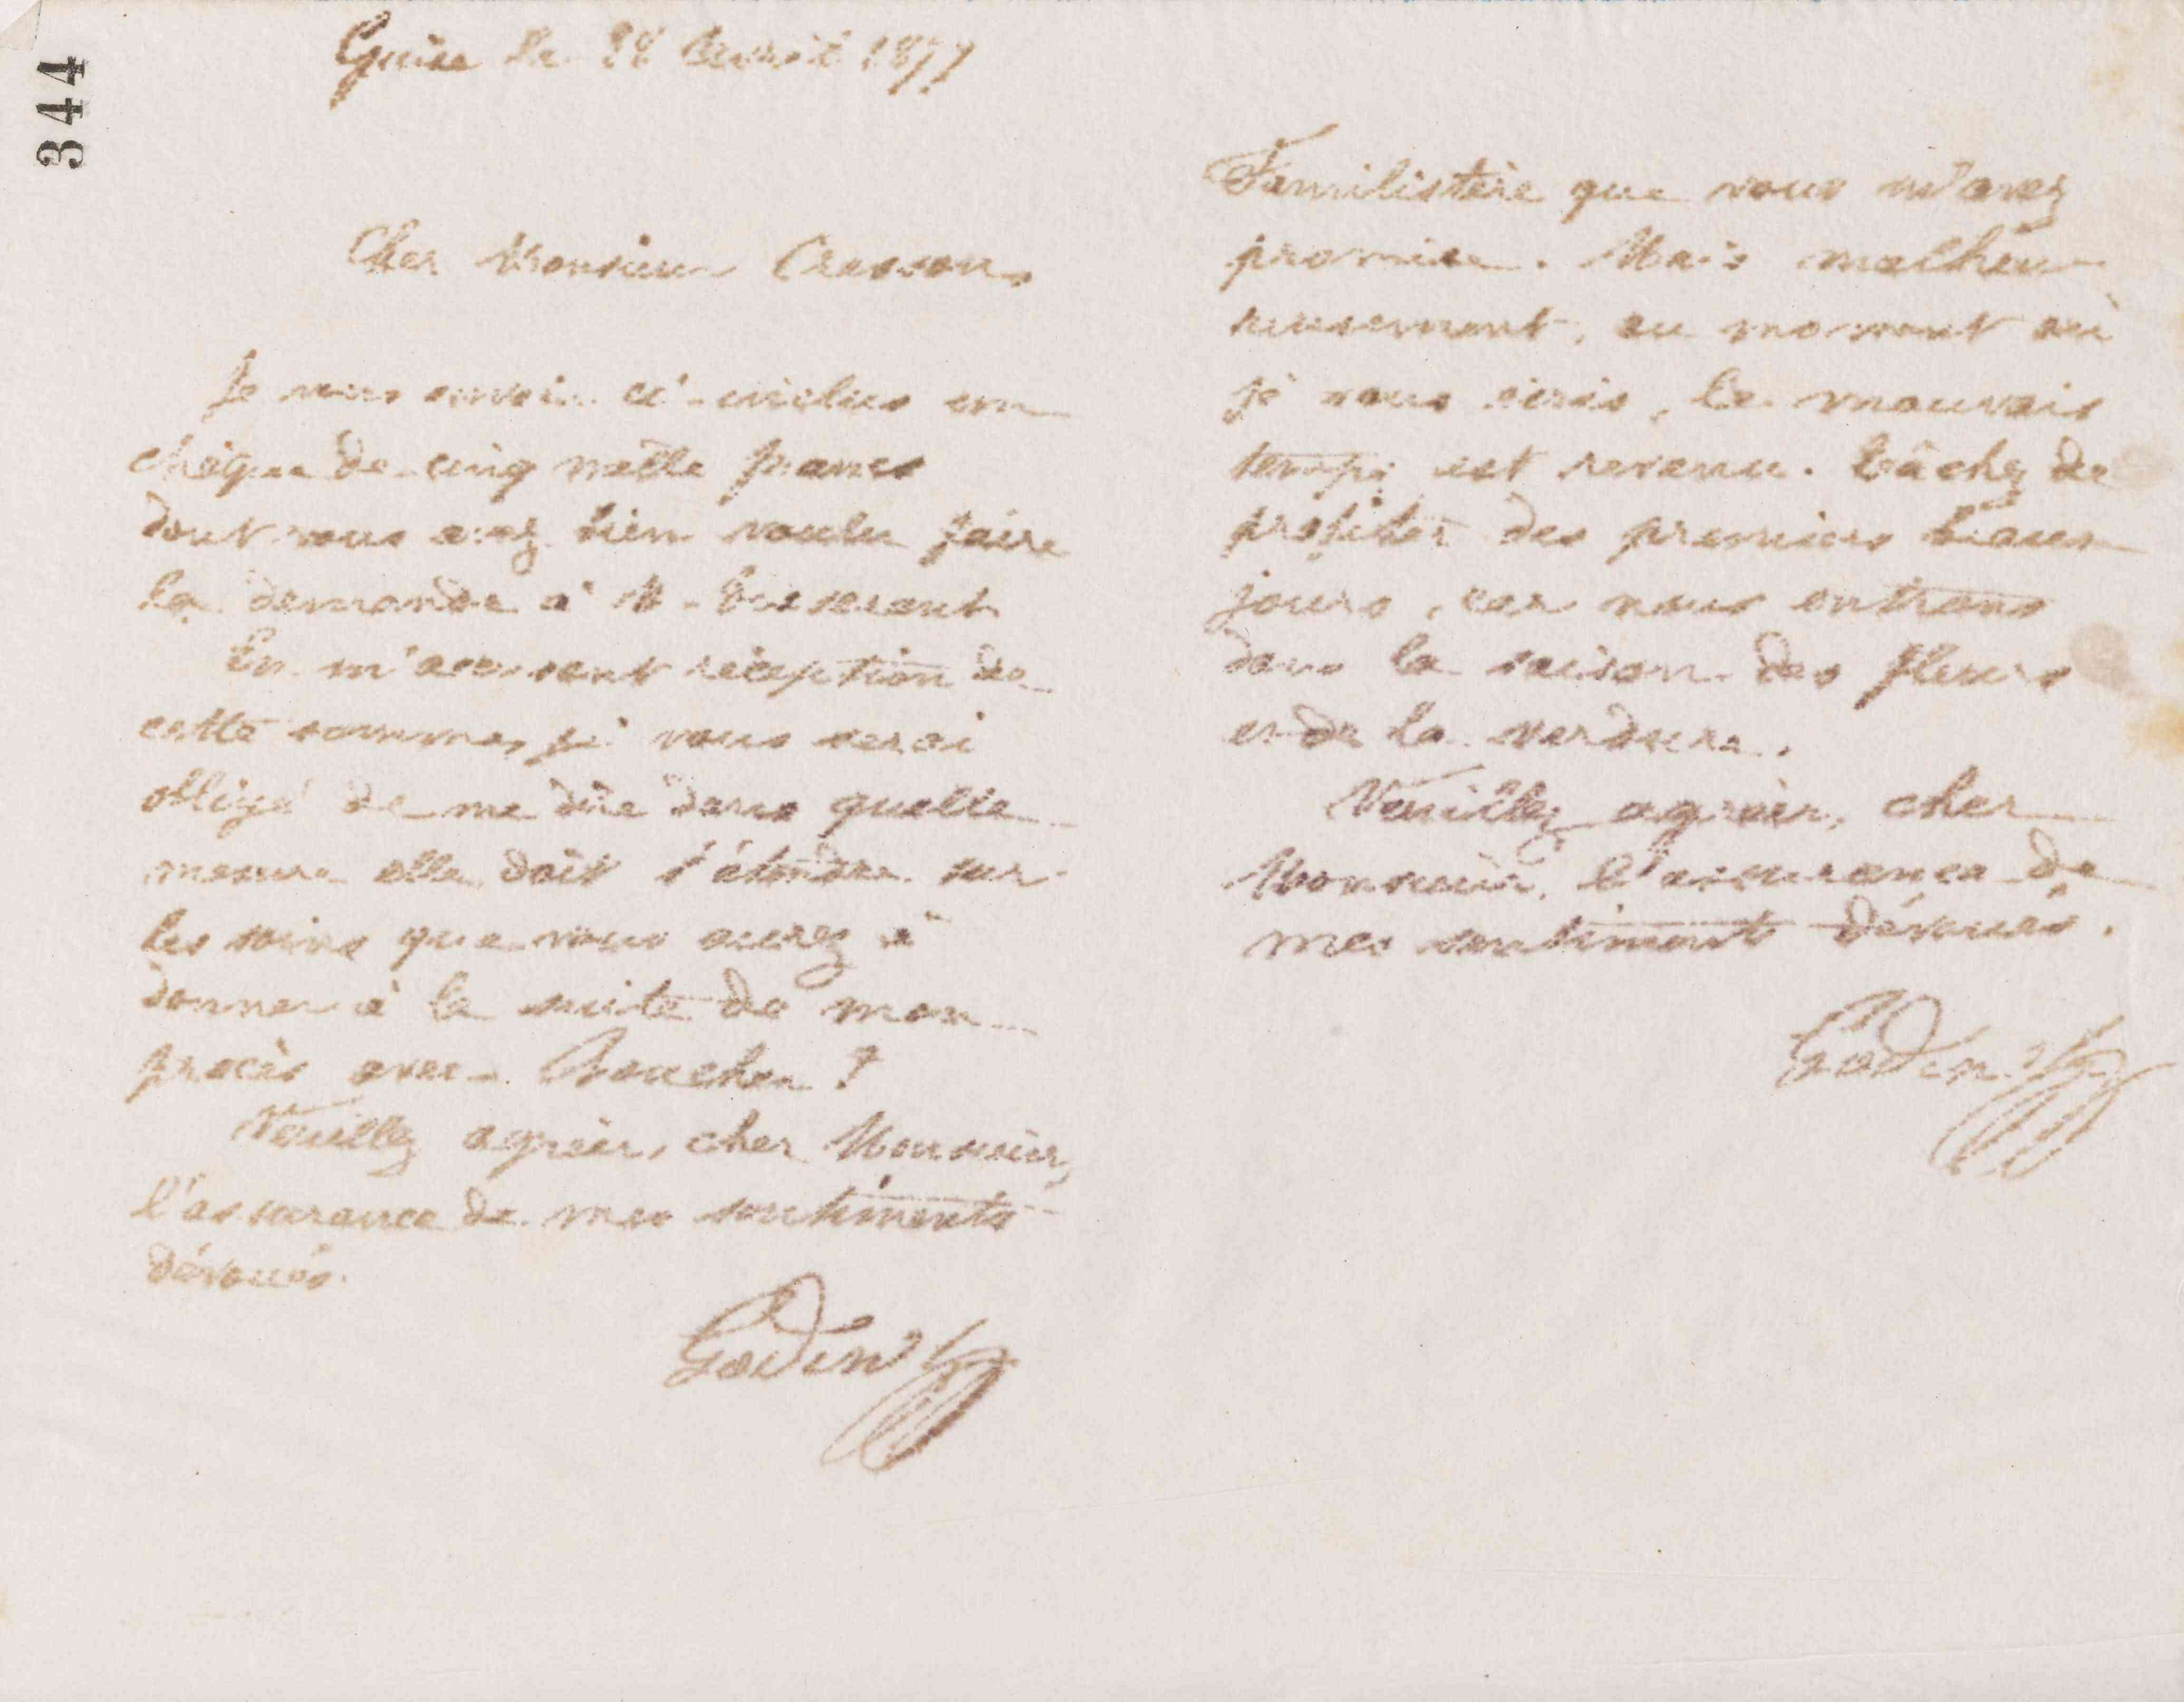 344
Guise le 28 Avril 1877
Cher Monsieur Cresson,
Je vous envoie ci-inclus un
chèque de cinq mille francs
dont vous avez bien voulu faire
la demande à M. Tisserant
En m'accusant réception de
cette somme, je vous serai
obligé de me dire dans quelle
mesure elle doit s'étendre sur
les soins que vous aurez à
donner à la suite de mon
procès avec Boucher ?
Veuillez agréer, cher Monsieur,
l'assurance de mes sentiments
dévoués.
Godin
Familistère que vous m'avez
promise. Mais malheu-
reusement, au moment où
je vous écris, le mauvais
temps est revenu. Tâchez de
profiter des premiers beaux
jours, car nous entrons
dans la saison des fleurs
et de la verdure.
Veuillez agréer, cher
Monsieur, l'assurance de
mes sentiments dévoués.
Godin